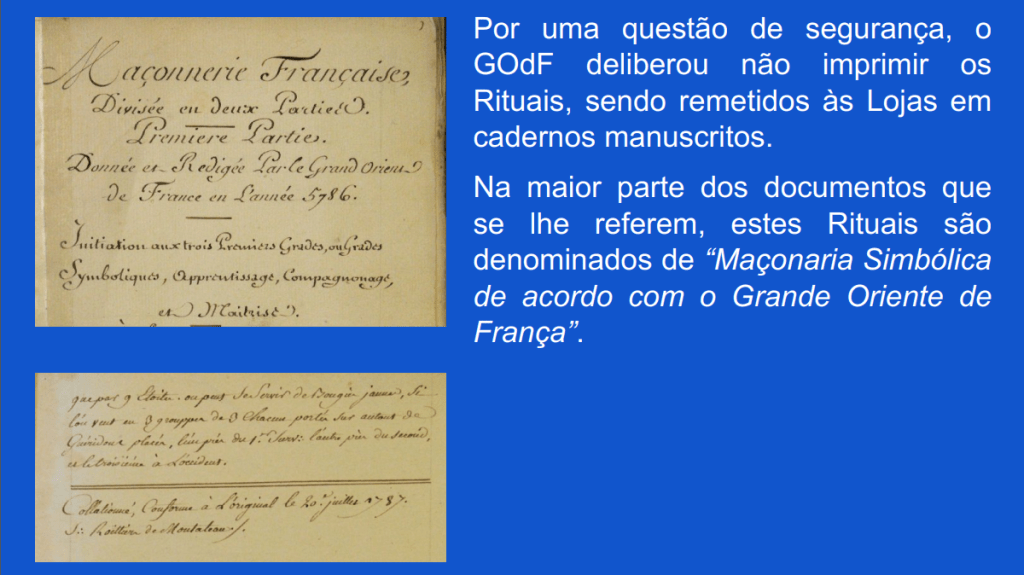 Maçonnerie Française,
Divisée en deux Parties.
Premiere Partie.
Donnée et Redigée Par le Grand Orient
de France en L'année 5786.
Initiation aux trois Premiers Grades, ou Grades
Symboliques, Apprentissage, Compagnonage,
et Maitrise.
que par 9 Etoiles. on peut se Servir de Bougie jaune, Si
l'on veut en 3 grouppes de 3 Chacune portés Sur autant de
Guéridons placés, l'un près du 1.er Surv: l'autre près du second,
et le troisième à L'occident.
Collationné, Conforme à L'original le 20.e juillet 1787.
Roëttiers de Montaleau
Por uma questão de segurança, o
GOdF deliberou não imprimir os
Rituais, sendo remetidos às Lojas em
cadernos manuscritos.
Na maior parte dos documentos que
se lhe referem, estes Rituais são
denominados de “Maçonaria Simbólica
de acordo com o Grande Oriente de
França”.